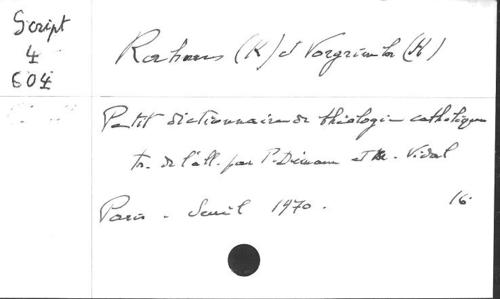 Script
4
604
Rahner (K) et Vorgrimler (H)
Petit dictionnaire de théologie catholique
tr. de l'all. par P. Démann et M. Vidal
Paris - Seuil 1970. 16.